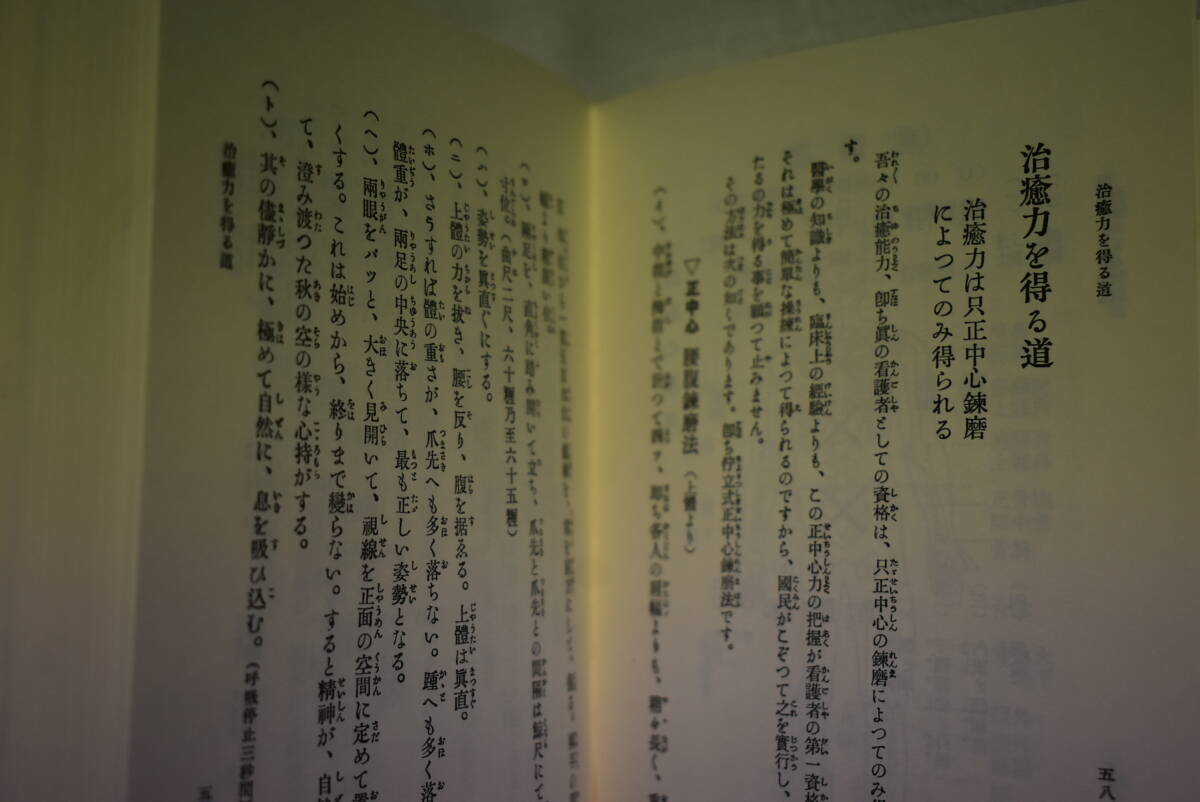 治癒力を得る道
五八
治癒力を得る道
治癒力は只正中心鍊磨
によつてのみ得られる
吾々の治癒能力、卽ち眞の看護者としての資格は、只正中心の鍊磨によつてのみ得
す。
醫學の知識よりも、臨床上の經驗よりも、この正中心力の把握が看護者の第一資格
それは極めて簡單な操練によつて得られるのですから、國民がこぞつて之を實行し、
たるの力を得る事を願つて止みません。
その方法は次の如くであります。卽ち佇立式正中心鍊磨法です。
▽正中心 腰腹鍊磨法（上體より）
（ハ）、姿勢を眞直ぐにする。
（ニ）、上體の力を拔き、腰を反り、腹を据ゑる。上體は眞直。
（ホ）、さうすれば體の重さが、爪先へも多く落ちない。踵へも多く落
體重が、兩足の中央に落ちて、最も正しい姿勢となる。
（ヘ）、兩眼をパッと、大きく見開いて、視線を正面の空間に定めて
くする。これは始めから、終りまで變らない。すると精神が、自
て、澄み渡つた秋の空の樣な心持がする。
（ト）、其の儘靜かに、極めて自然に、息を吸ひ込む。（呼吸停止三秒間
治癒力を得る道
五